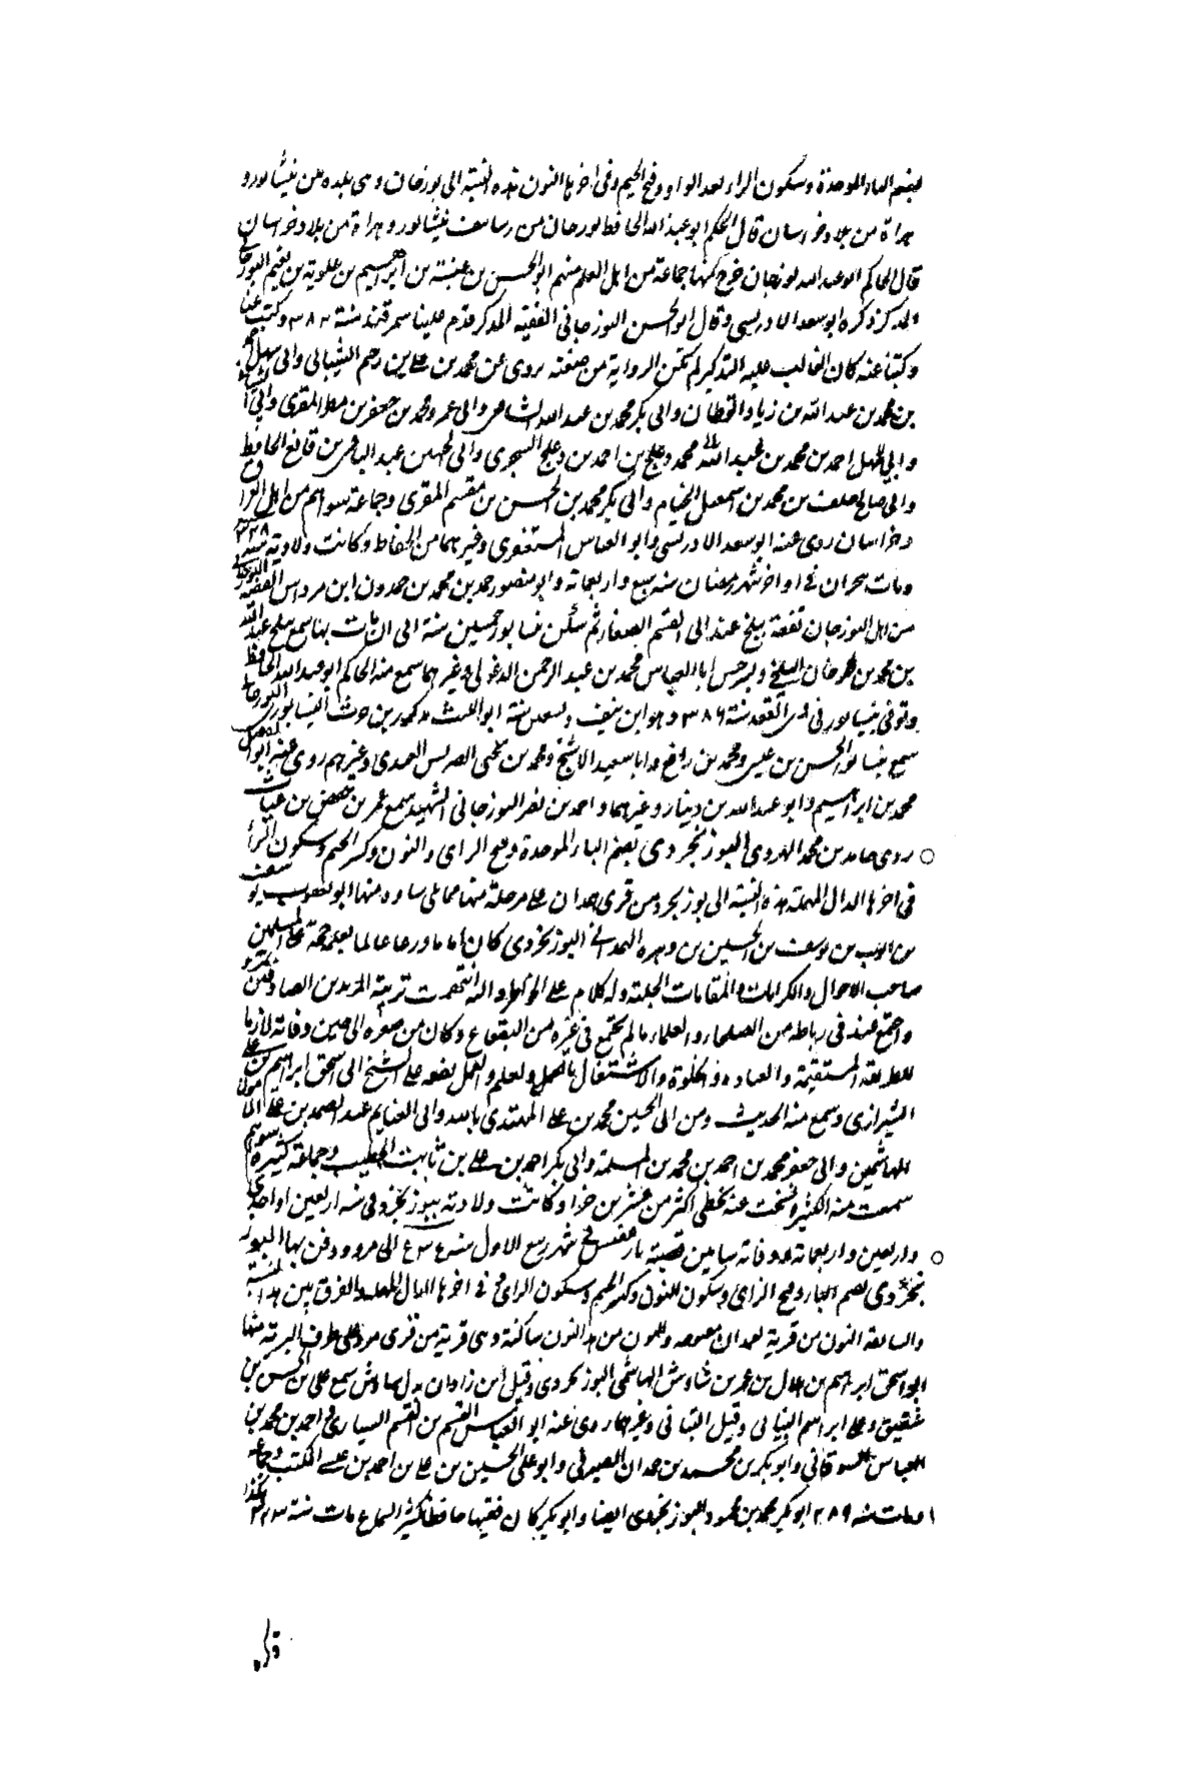 بضم الباء الموحدة وسكون الراء بعد الواو وفتح الجيم وفي اخرها النون هذه النسبة الى بوزجان وهي بلدة بين نيشابور و
هراة من بلاد خراسان قال الحاكم ابو عبد الله الحافظ بوزجان من رساتيق نيشابور وهراة من بلاد خراسان
قال الحاكم ابو عبد الله بوزجان خرج منها جماعة من اهل العلم منهم ابو الحسن بن عنبسة بن ابراهيم بن علوية بن نعيم البوزجاني
المذكر ذكره ابو سعد الادريسي وقال ابو الحسن البوزجاني الفقيه المذكر قدم علينا سمرقند سنة ٣٨٢ وكتب عنا
وكتبنا عنه كان الغالب عليه التذكير لم تكن الرواية من صنعته يروي عن محمد بن علي بن رحيم الشيباني وابي سهل
بن محمد بن عبد الله بن زياد القطان وابي بكر محمد بن عبد الله الشافعي وابي عمرو محمد بن جعفر بن مطر المقرى وابي
وابي سهل احمد بن محمد بن عبد الله محمد دعلج بن احمد بن دعلج السجزي وابي الحسين عبد الباقي بن قانع الحافظ
وابي صالح خلف بن محمد بن اسمعيل الخيام وابي بكر محمد بن الحسن بن مقسم المقرى وجماعة سواهم من اهل العراق
وخراسان روى عنه ابو سعد الادريسي وابو العباس المستغفري وغيرهما من الحفاظ وكانت ولادته سنة ٣٣٨
ومات في اواخر شهر رمضان سنة سبع واربعماية وابو منصور حمد بن محمد بن حمدون ابن مرداس الفقيه البوزجاني
من اهل البوزجان تفقه ببلخ عند ابي القسم الصفار ثم سكن نيسابور خمسين سنة الى ان مات بها سمع ببلخ عبد الله
بن محمد بن طرخان البلخي وبسرخس ابا العباس محمد بن عبد الرحمن الدغولي وغيرهما سمع منه الحاكم ابو عبد الله الحافظ
وتوفي بنيسابور في ذي القعدة سنة ٣٨٦ وهو ابن نيف وتسعين سنة ابو الليث بن حرث النيسابوري البوزجاني
سمع بنيسابور الحسن بن عيسى ومحمد بن رافع وابا سعيد الاشج ومحمد بن يحيى العبدي وغيرهم روى عنه ابو الفضل
محمد بن ابراهيم وابو عبد الله بن دينار وغيرهما واحمد بن نصر البوزجاني الشهيد سمع عمر بن حفص بن غياث
روى حامد بن محمد الهروي البوزنجردي بضم الباء الموحدة وفتح الزاي والنون وكسر الجيم وسكون الرا
في اخرها الدال المهملة هذه النسبة الى بوزنجرد من قرى همدان على مرحلة منها مما يلي ساوه منها ابو يعقوب يوسف
بن ايوب بن يوسف بن الحسين بن وهره الهمداني البوزنجردي كان اماما ورعا عالما بعلمه حجة على المسلمين
صاحب الاحوال والكرامات والمقامات الجليلة وله كلام على الخواطر واليه انتهت تربية المريدين الصادقين
واجتمع عنده في رباطه من الصلحاء والعلماء ما لم يجتمع في غيره من البقاع وكان من صغره الى حين وفاته لازما
للطريقة المستقيمة والعبادة والخلوة والاشتغال بالعمل والعلم والعمل تفقه على الشيخ ابي اسحق ابراهيم بن علي
الشيرازي وسمع منه الحديث ومن ابي الحسين محمد بن علي المهتدي بالله وابي الغنايم عبد الصمد بن علي المامون
الهاشميين وابي جعفر محمد بن احمد بن محمد بن المسلمة وابي بكر احمد بن علي بن ثابت الخطيب وجماعة كثيرة سواهم
سمعت منه الكثير ونسخت عنه بخطي اكثر من عشرين جزءا وكانت ولادته ببوزنجرد في سنة اربعين او احدى
واربعين واربعماية ووفاته بباميين قصبة بادغيس في شهر ربيع الاول سنة الى مرو ودفن بها البوز
نجردي بضم الباء وفتح الزاي وسكون النون وكسر الجيم وسكون الراء في اخرها الدال المهملة والفرق بين هذا النسبة
والسابقة النون من قرية همدان مفتوحه والنون من هذا النون ساكنة وهي قرية من قرى مرو على طرف البرية منها
ابو اسحق ابراهيم بن هلال بن عمر بن شاوش الهاشمي البوزنجردي وقيل ابن زاذان بدل شاوش سمع علي بن الحسن بن
شقيق وعلي ابراهيم البناني وقيل البناني وغيرهما روى عنه ابو العباس القسم بن القسم السياري واحمد بن محمد بن
العباس السوسقاني وابو بكر بن محمد بن حمدان الصيرفي وابو علي الحسين بن علي بن احمد بن عيسى المكتب وجماعة
ومات سنة ٢٨٩ ابو بكر محمد بن محمود البوزنجردي ايضا وابو بكير كان فقيها حافظا كثير السماع مات سنة